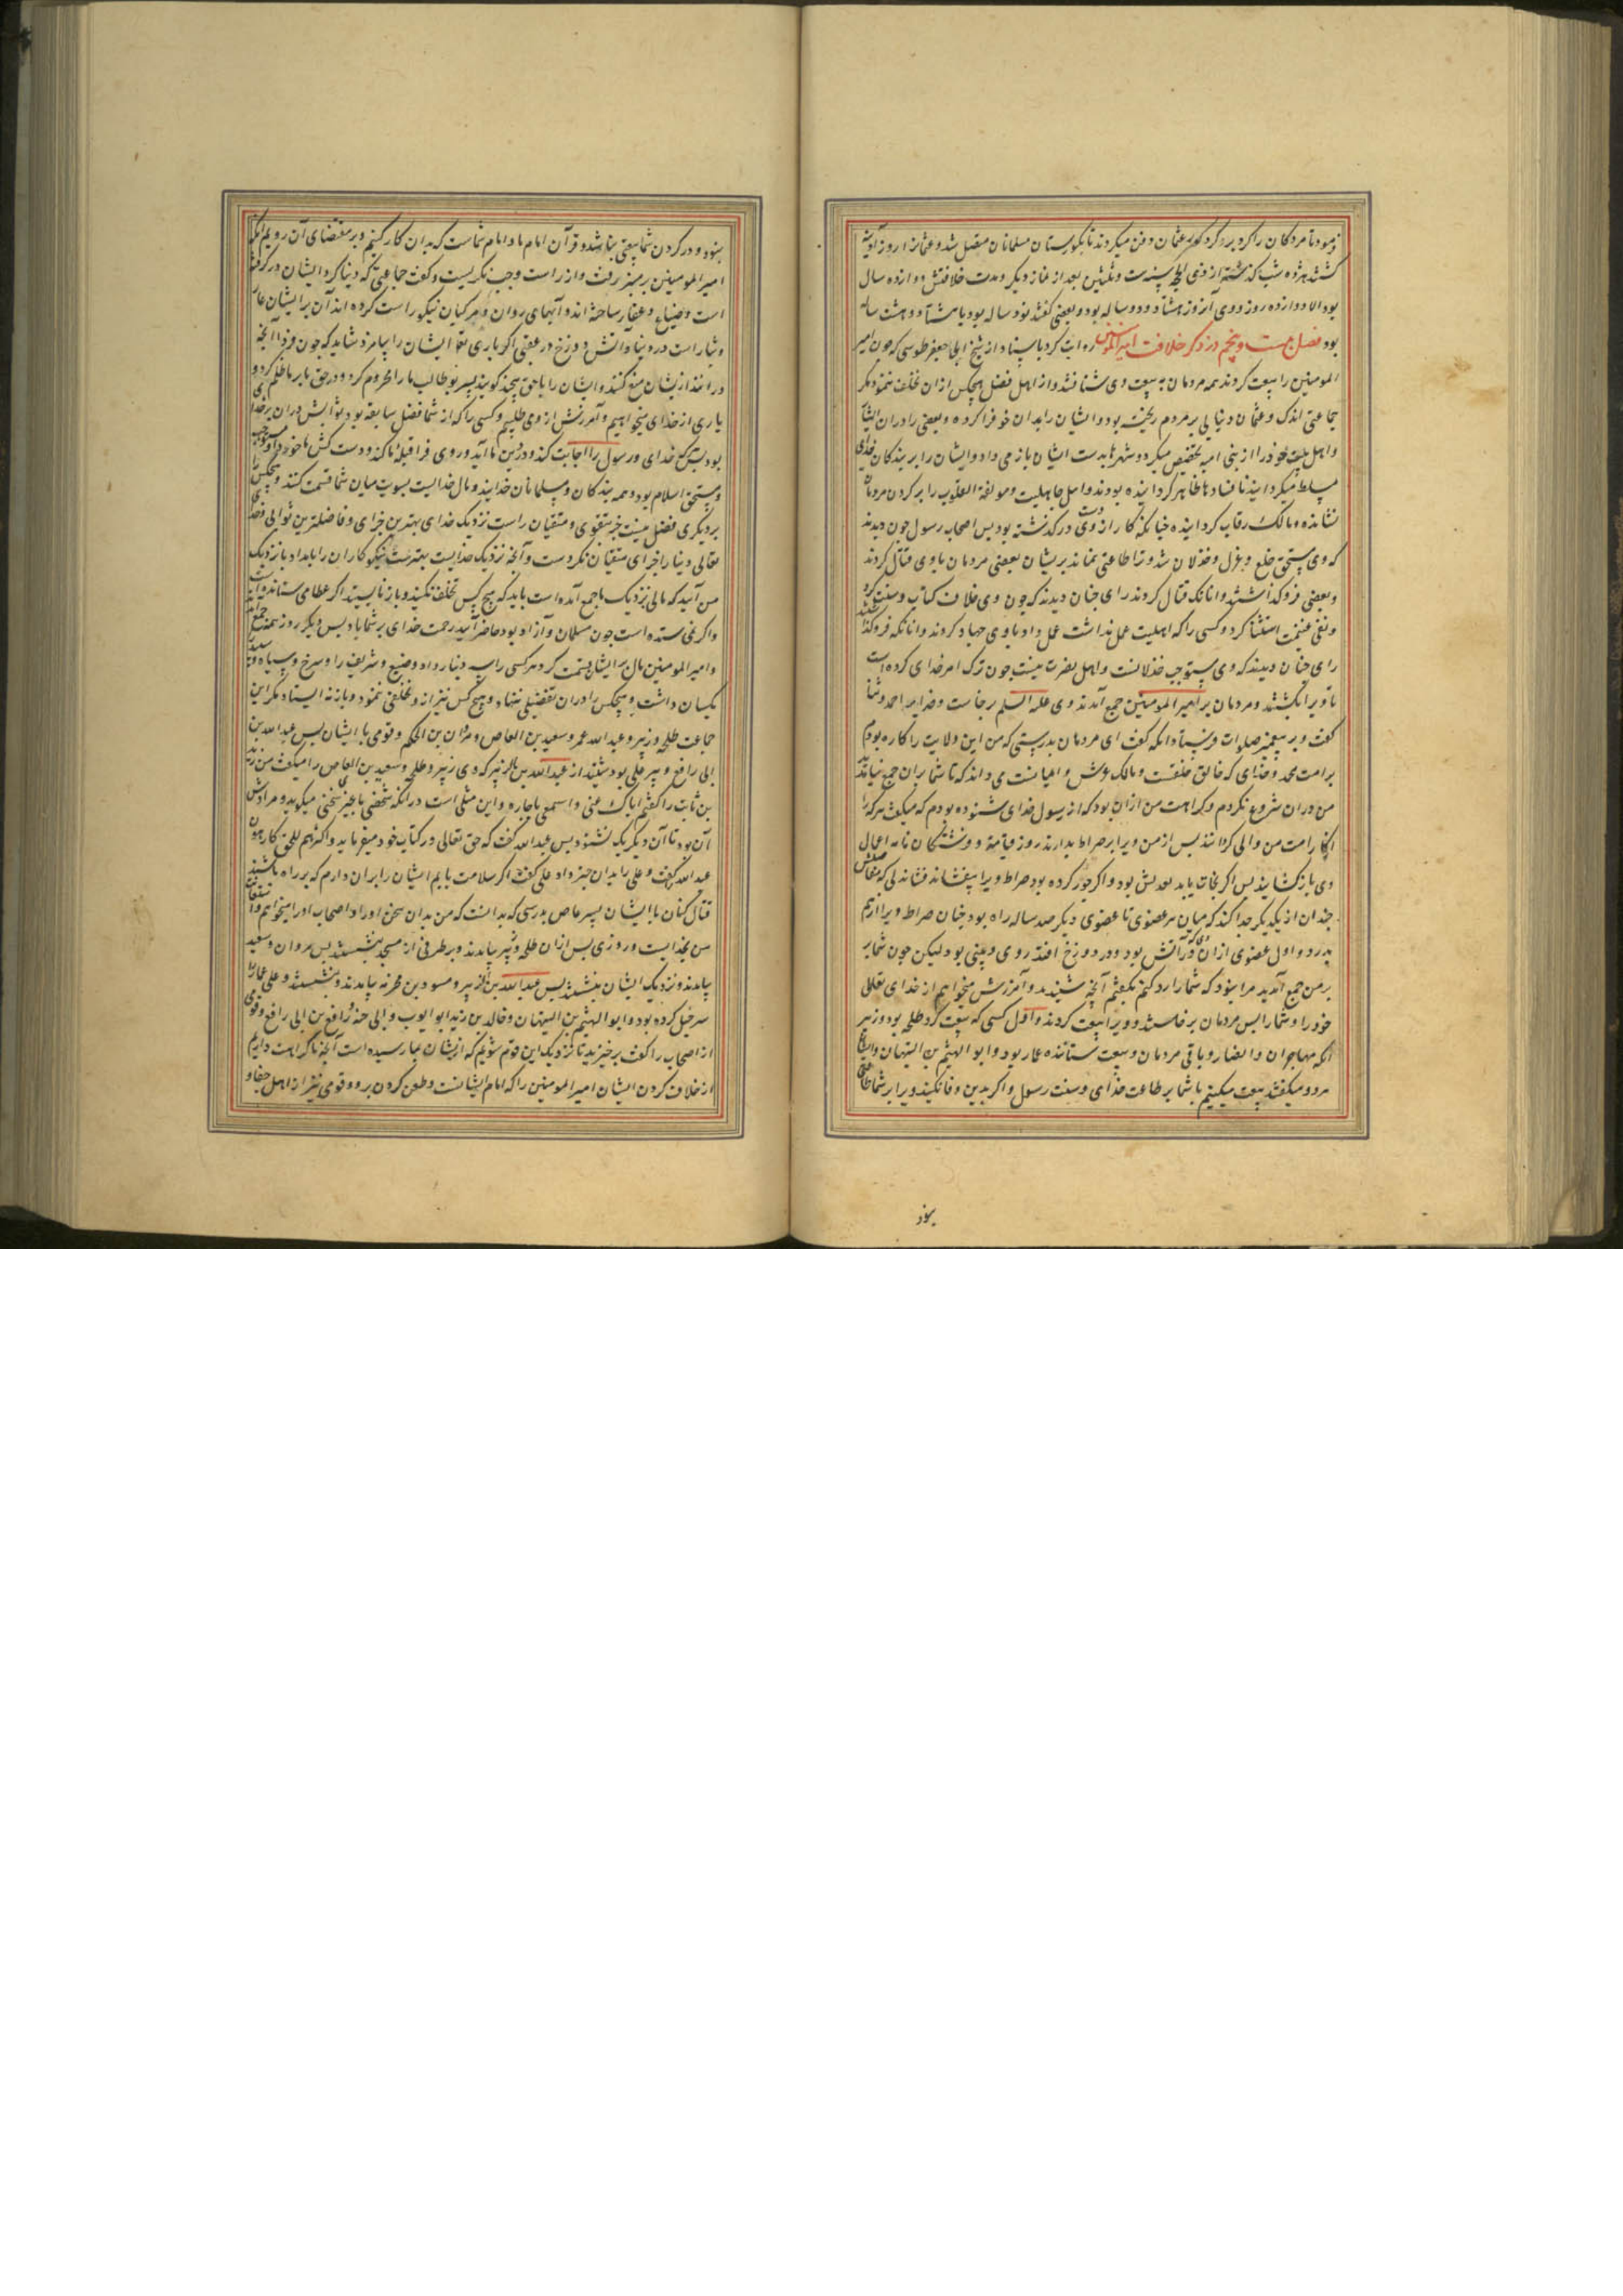 فرمود تا مردکان را کرد بر کرد کور عثمان دفن میکردند تا بکورستان مسلمانان متصل شد و عثمانرا روز آدینه
کشتند هژده شب کذشته از ذی الحجه سنه خمس و ثلثین بعد از نماز دیکر و مدت خلافتش دوازده سال
بود الا دوازده روز و وی آنروز هشتاد و دو ساله بود و بعضی کفتند نود ساله بود یا هشتاد و هشت ساله
بود فصل بیست و پنجم در ذکر خلافت امیر المومنین روایت کرد باسناد از شیخ ابی جعفر طوسی که جون امیر
المومنین را بیعت کردند همه مردمان به بیعت وی شتافتند و از اهل فضل هیچکس ازان تخلف ننمود مکر
جماعتی اندک و عثمان دنیایی بر مردم ریخته بود و ایشان را بدان خو فرا کرده و بعضی را دران
و اهل بیت خود را از بنی امیه تخصیص میکرد و شهرها بدست ایشان باز می داد و ایشان را بر بندکان خدای
مسلط میکردانید تا فسادها ظاهر کردانیده بودند و اهل جاهلیت و مولفة القلوب را بر کردن مردمان
نشانده و مالک رقاب کردانیده جنانکه کار از دست وی درکذشته بود بس اصحاب رسول جون دیدند
که وی مستحق خلع و عزل و خذلان شد و ترا طاعتی نماند بریشان بعضی مردمان با وی قتال کردند
و بعضی فروکذاشتند و آنانک قتال کردند رای جنان دیدند که جون وی خلاف کتاب و سنت کرد
و نفی غنیمت استثنا کرد و کسی را که اهلیت عمل نداشت عمل داد با وی جهاد کردند و آنانکه فروکذاشتند
رای جنان دیدند که وی مستوجب خذلانست و اهل نصرت نیست جون ترک امر خدای کرده است
تا ویرا بکشتند و مردمان بر امیر المومنین جمع آمدند وی علیه السلم برخاست و خدایرا حمد و ثنا
کفت و بر پیغمبر صلوات فرستاد انکه کفت ای مردمان بدرستی که من این ولایت را کاره بودم
بر امت محمد و خدای که خالق خلقت و مالک عرش و اعیانست می داند که تا شما بران جمع نیامدید
من دران شروع نکردم و کراهت من ازان بود که از رسول خدای شنوده بودم که میکفت هر که را
از کار امت من والی کردانند بس از من ویرا بر صراط بدارند روز قیامة و فرشتکان نامه اعمال
وی باز کشایند بس اکر نجات یابد بعدلش بود و اکر جور کرده بود صراط ویرا بیفشاند فشاندنی که مفاصلش
جندان از یکدیکر جدا کند که میان هر عضوی تا عضوی دیکر صد ساله راه بود جنان صراط ویرا از هم
بدرد و اول عضوی ازان وی که در آتش بود و در دوزخ افتد روی و بینی بود لیکن جون شما بر
بر من جمع آمدید مرا نبود که شما را رد کنم بکفتم آنچه شنیدید و آمرزش میخواهم از خدای تعالی
خود را و شما را بس مردمان برخاستند و ویرا بیعت کردند و اول کسی که بیعت کرد طلحه بود و زبیر
انکه مهاجران و انصار و باقی مردمان و بیعت ستاننده عمار بود و ابو الهیثم بن التیهان و این
هر دو میکفتند بیعت میکنیم با شما بر طاعت خدای و سنت رسول و اکر بدین وفا نکنید ویرا بر شما طاعتی
بود
نبود و در کردن شما بیعتی نباشد و قرآن امام ما و امام شماست که بدان کار کنیم و بر مقتضای آن رویم انکه
امیر المومنین بر منبر رفت و از راست و چپ نکریست و کفت جماعتی که دنیا کرد ایشان درکرفته
است و ضیاع و عقار ساخته اند و آبهای روان و مرکبان نیکو راست کرده اند آن بر ایشان عار
و شنار است در دنیا و آتش دوزخ در عقبی اکر باری تعالی ایشان را نیامرزد شاید که جون فردا آنچه
در آنند ازیشان منع کنند و ایشان را با حق بیجند کویند پسر بو طالب ما را محروم کرد و در حق ما بر ما ظلم کرد و
یاری از خدای میخواهیم و آمرزش از وی طلبیم و کسی را که از شما فضل سابقه بود ثوابش دران بر خدای
بود بس هرکه خدای و رسول را اجابت کند و در دین ما آید و روی فرا قبله ما کند و دست کش ما خورد او مستوجب
و مستحق اسلام بود و همه بندکان و مسلمانان خدایند و مال خدایست بسویت میان شما قسمت کنند و هیچکس را
بر دیکری فضل نیست جز بتقوی و متقیان راست نزدیک خدای بهترین جزای و فاضلترین ثوابی و خدای
تعالی دنیا را جزای متقیان نکردست و آنچه نزدیک خدایست بهترست نیکوکاران را بامداد با نزدیک
من آئید که مالی نزدیک ما جمع آمده است باید که هیچ کس تخلف نکنید و باز نایستید اکر عطا می ستانده است
و اکر نمی ستده است جون مسلمان و آزاد بود حاضر آیید رحمت خدای بر شما باد بس دیکر روز همه جمع شدند
و امیر المومنین مال بر ایشان قسمت کرد هر کسی را سه دینار داد وضیع و شریف را و سرخ و سیاه و سپید
یکسان داشت و هیچکس را دران تفضیلی ننهاد و هیچ کس نیز ازو تخلفی ننمود و باز نه ایستاد مکر این
جماعت طلحه و زبیر و عبد الله عمر و سعید بن العاص و مروان بن الحکم و قومی با ایشان بس عبد الله بن
ابی رافع دبیر علی بود شنید از عبد الله بن الزبیر که وی زبیر و طلحه و سعید بن العاص را میکفت من زید
بن ثابت را کفتم ایاک اعنی و اسمعی یا جاره و این مثلی است در انکه شخصی با غیری سخنی میکوید و مرادش
آن بود تا آن دیکر یک شنود بس عبد الله کفت که حق تعالی در کتاب خود میفرماید و اکثرهم للحق کارهون
عبد الله کفت و علی را بدان خبر داد علی کفت اکر سلامت یابم ایشان را بران دارم که بر راه باشند
قتال کنان با ایشان پسر عاص بدرستی که بدانست که من بدان سخن او را و اصحاب او را میخواهم و استعانت
من بخدایست و روزی بس ازان طلحه و زبیر بیامدند و بر طرفی از مسجد بنشستند بس مروان و سعید
بیامدند و نزدیک ایشان بنشستند بس عبد الله بن الزبیر و مسور بن مخرمه بیامدند و بنشستند و علی عمار را
سرخیل کرده بود و ابو الهیثم بن التیهان و خالد بن زید ابو ایوب و ابی حنه و رافع بن ابی رافع و قومی
از اصحاب را کفت برخیزید تا نزدیک این قوم شویم که ازیشان بما رسیده است آنچه ما کراهت داریم
از خلاف کردن ایشان امیر المومنین را که امام ایشانست و طعن کردن برو و قومی نیز از اهل جفا و